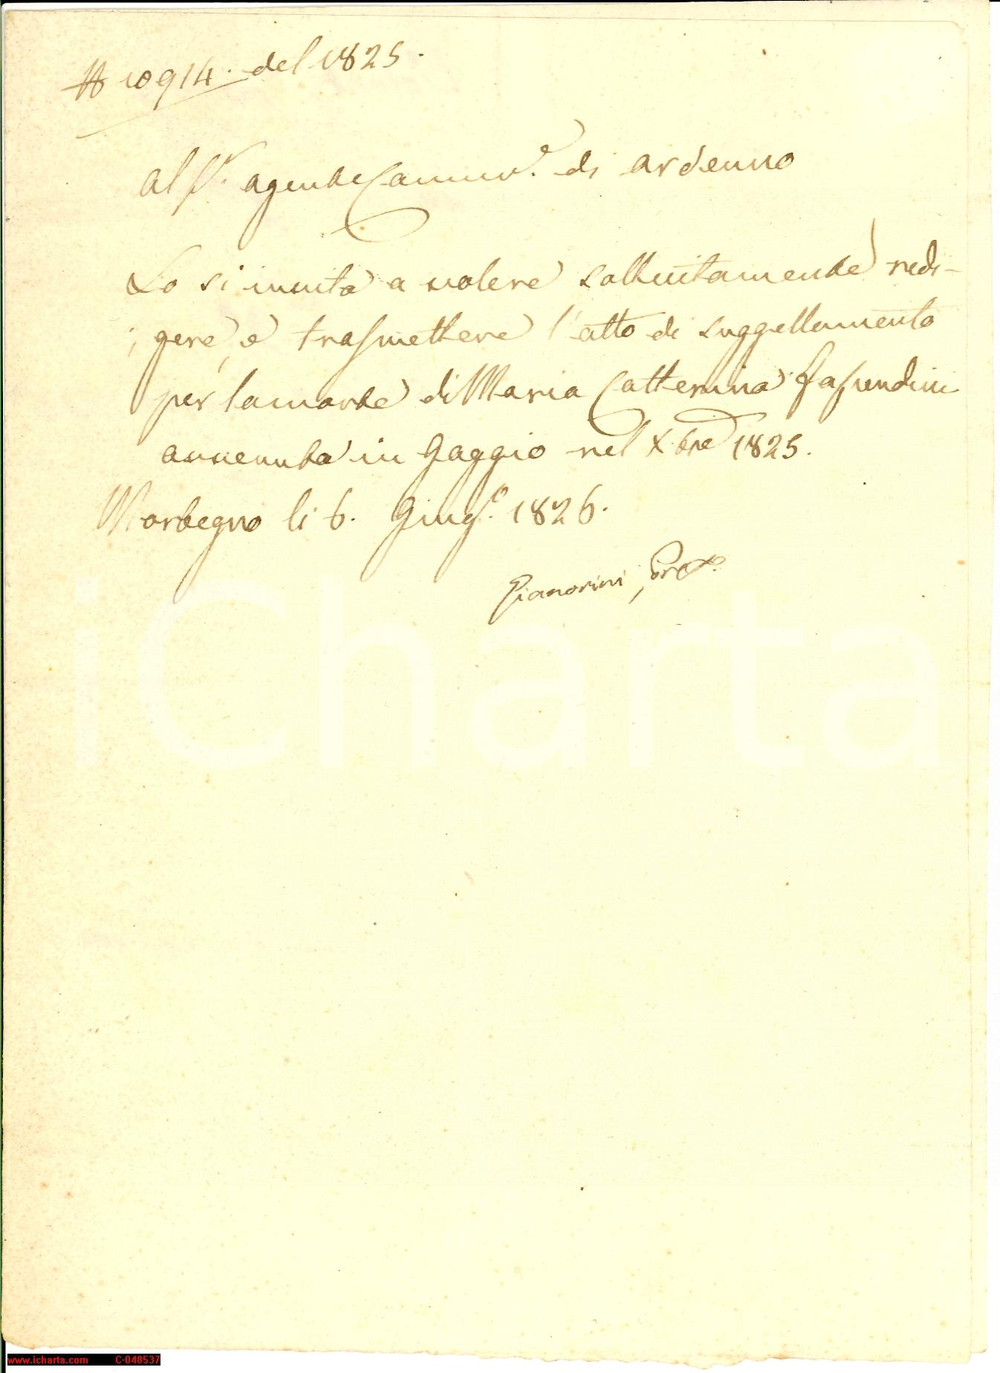 N 10914. del 1825.
Al Sr. agente Comunle. di Ardenno
Lo si invita a volere sollecitamente redi-
gere, e trasmettere l'atto di suggellamento
per la morte di Maria Catterina Fasendini
avvenuta in Gaggio nel Xbre 1825.
Morbegno li 6. Giugo. 1826.
Pianorini, Pret.
iCharta
www.icharta.com C-048537